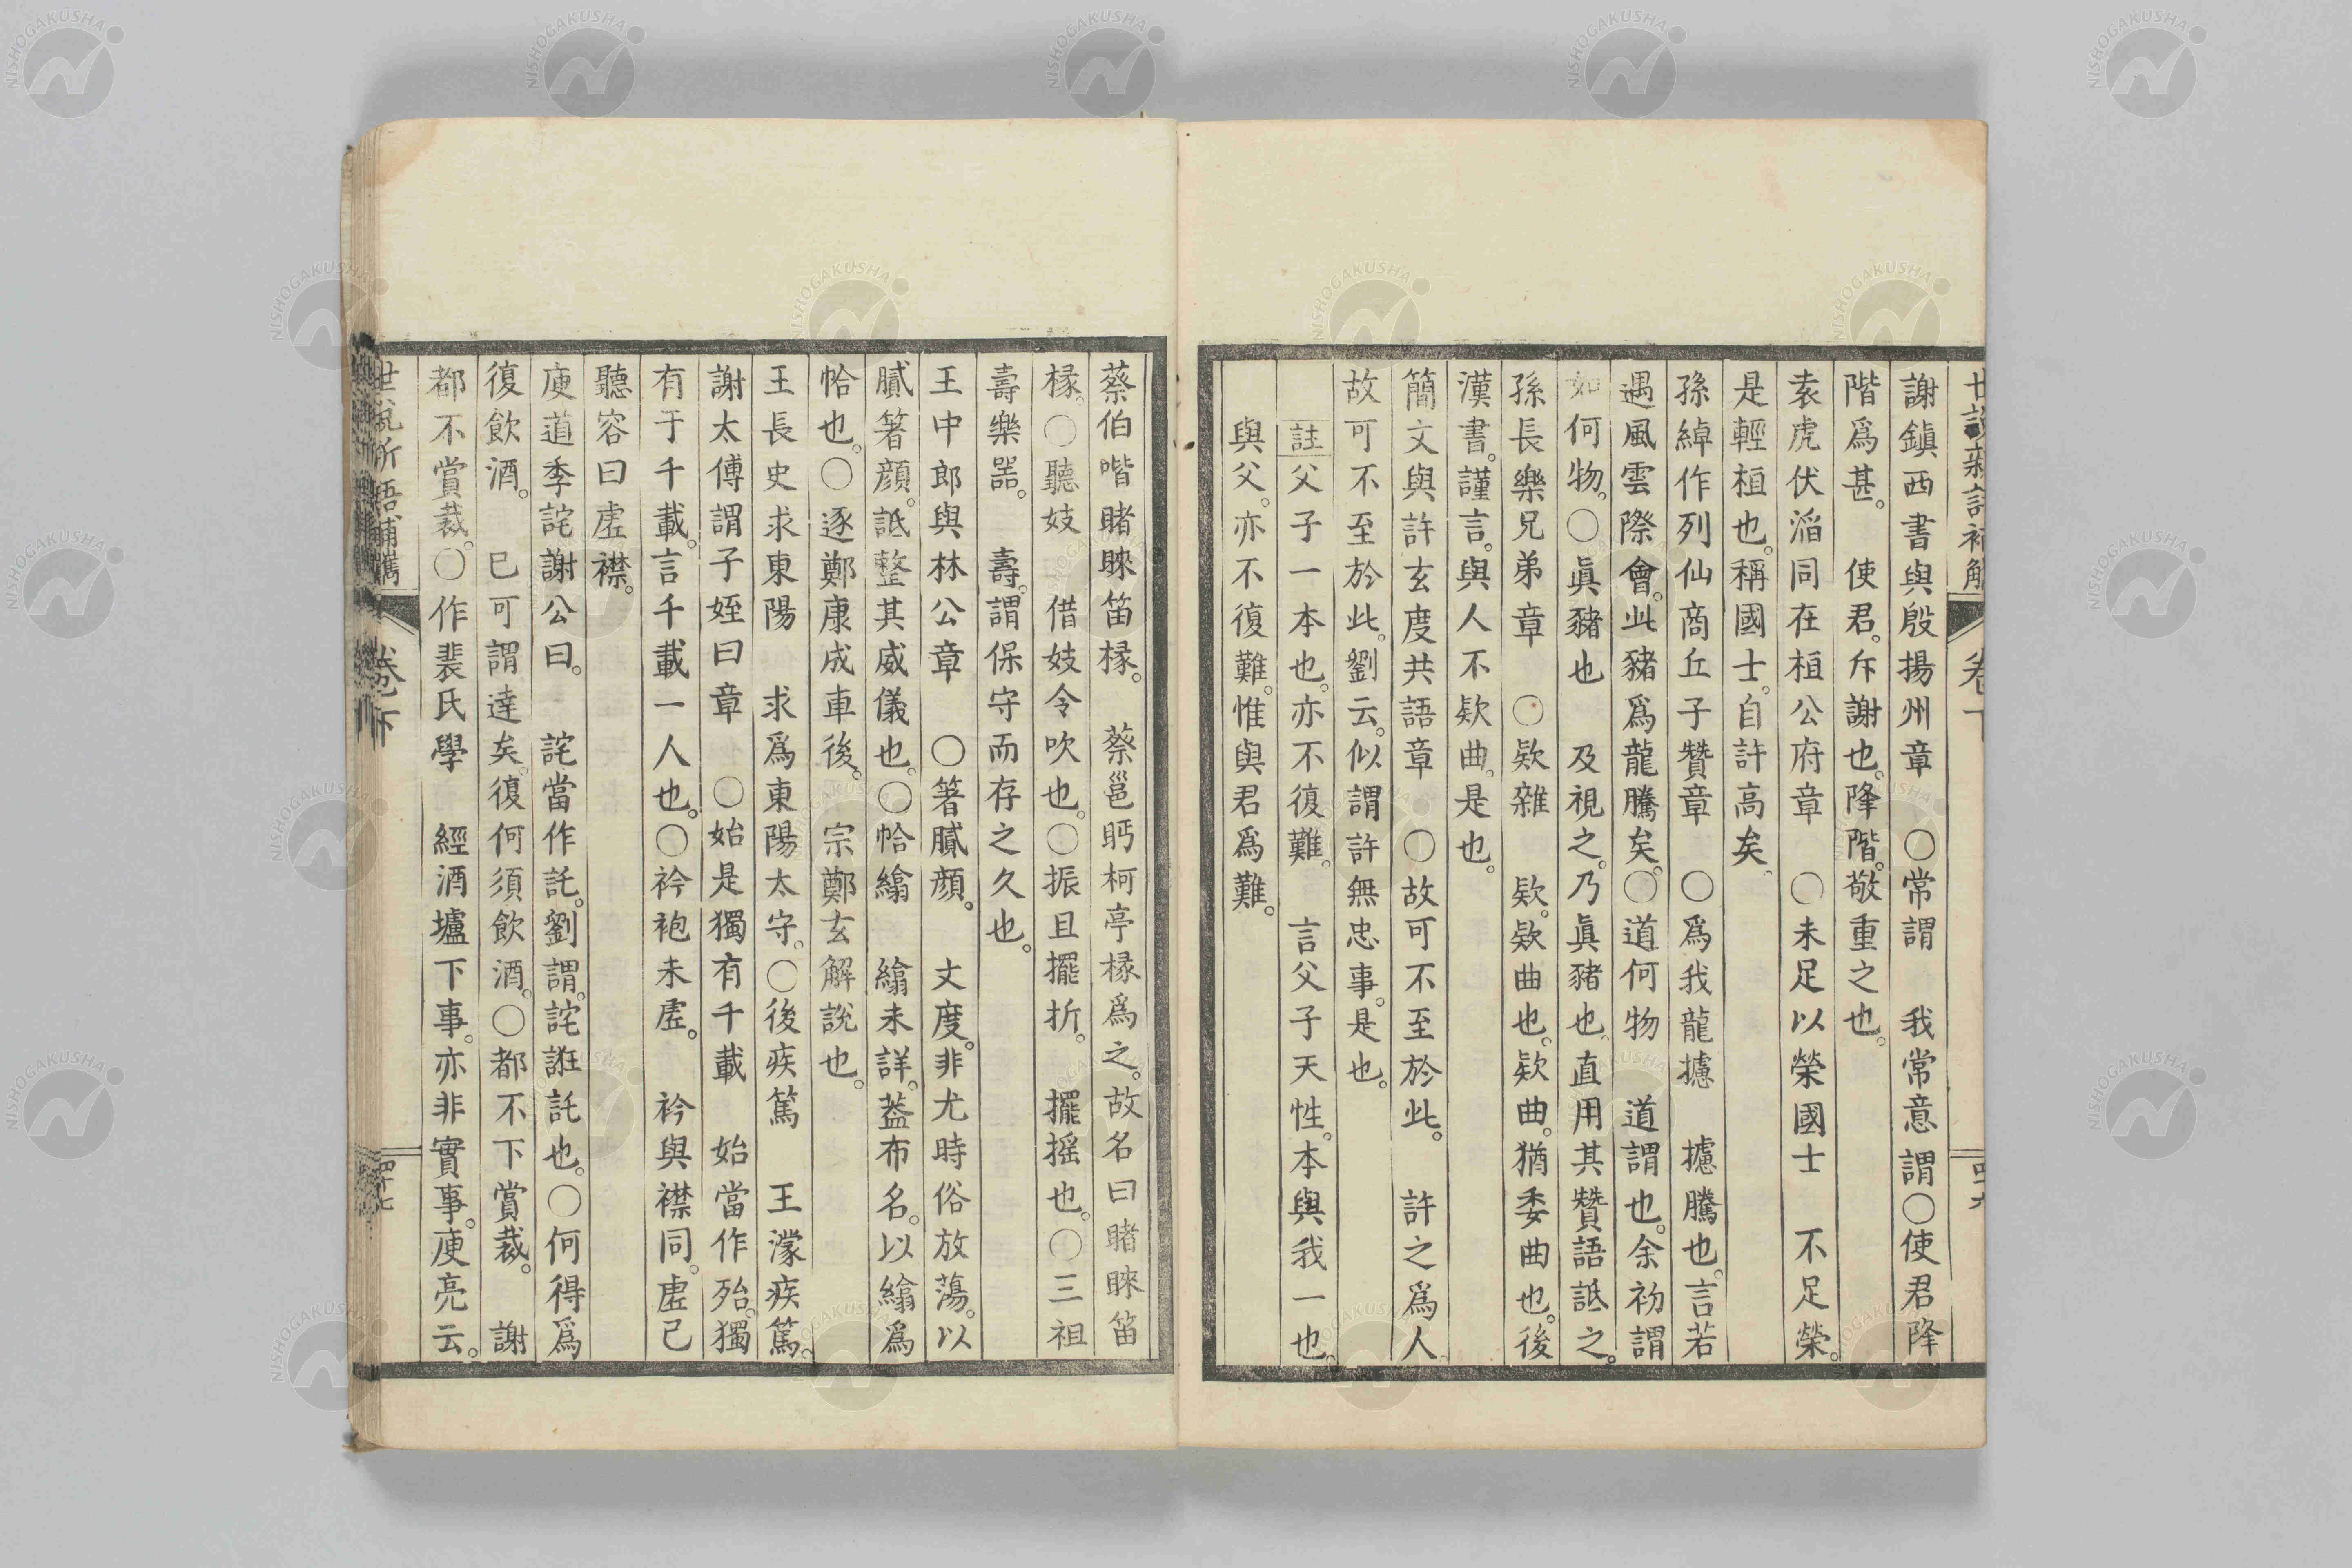 謝鎮西書與殷揚州章　〇常謂　我常意謂〇使君降
階爲甚。　使君。斥謝也。降階。敬重之也。
袁虎伏滔同在桓公府章　〇未足以榮國士　不足榮。
是輕桓也。稱國士。自許高矣。
孫綽作列仙商丘子贊章　〇爲我龍攄　攄騰也。言若
遇風雲際會。此豬爲龍騰矣。〇道何物　道謂也。余初謂
如何物。〇眞豬也　及視之。乃眞豬也。直用其贊語詆之。
孫長樂兄弟章　〇欵雜　欵。欵曲也。欵曲。猶委曲也。後
漢書。謹言。與人不欵曲。是也。
簡文與許玄度共語章　〇故可不至於此。　許之爲人
故可不至於此。劉云。似謂許無忠事。是也。
註父子一本也。亦不復難。　言父子天性。本與我一也。
與父。亦不復難。惟與君爲難。
蔡伯喈睹睞笛椽。　蔡邕眄柯亭椽爲之。故名曰睹睞笛
椽。〇聽妓　借妓令吹也。〇振且擺折。　擺搖也。〇三祖
壽樂器。　壽。謂保守而存之久也。
王中郎與林公章　〇箸膩顔。　丈度。非尤時俗放蕩。以
膩箸顔。詆整其威儀也。〇帢繪　繪未詳。蓋布名。以繪爲
帢也。〇逐鄭康成車後。　宗鄭玄解說也。
王長史求東陽　求爲東陽太守。〇後疾篤　王濛疾篤。
謝太傅謂子姪曰章　〇始是獨有千載　始當作殆。獨
有于千載。言千載一人也。〇衿袍未虛。　衿與襟同。虛己
聽容曰虛襟。
庾道季詫謝公曰。　詫當作託。劉謂。詫誑託也。〇何得爲
復飲酒。　已可謂達矣。復何須飲酒。〇都不下賞裁。　謝
都不賞裁。〇作裴氏學　經酒壚下事。亦非實事。庾亮云。
卷下